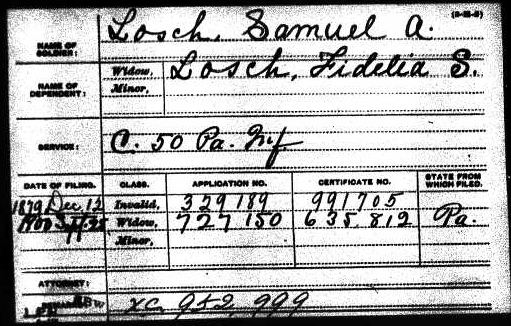 NAME OF SOLDIER: Losch, Samuel A.
NAME OF DEPENDENT: Widow, Losch, Fidelia S.
Minor,
SERVICE: C. 50 Pa. Inf
DATE OF FILING. CLASS. APPLICATION NO. CERTIFICATE NO. STATE FROM WHICH FILED.
1879 Dec 12 Invalid, 329189 991705
1900 Sept 25 Widow, 727150 635.812 Pa.
Minor,
ATTORNEY:
XC 952,999